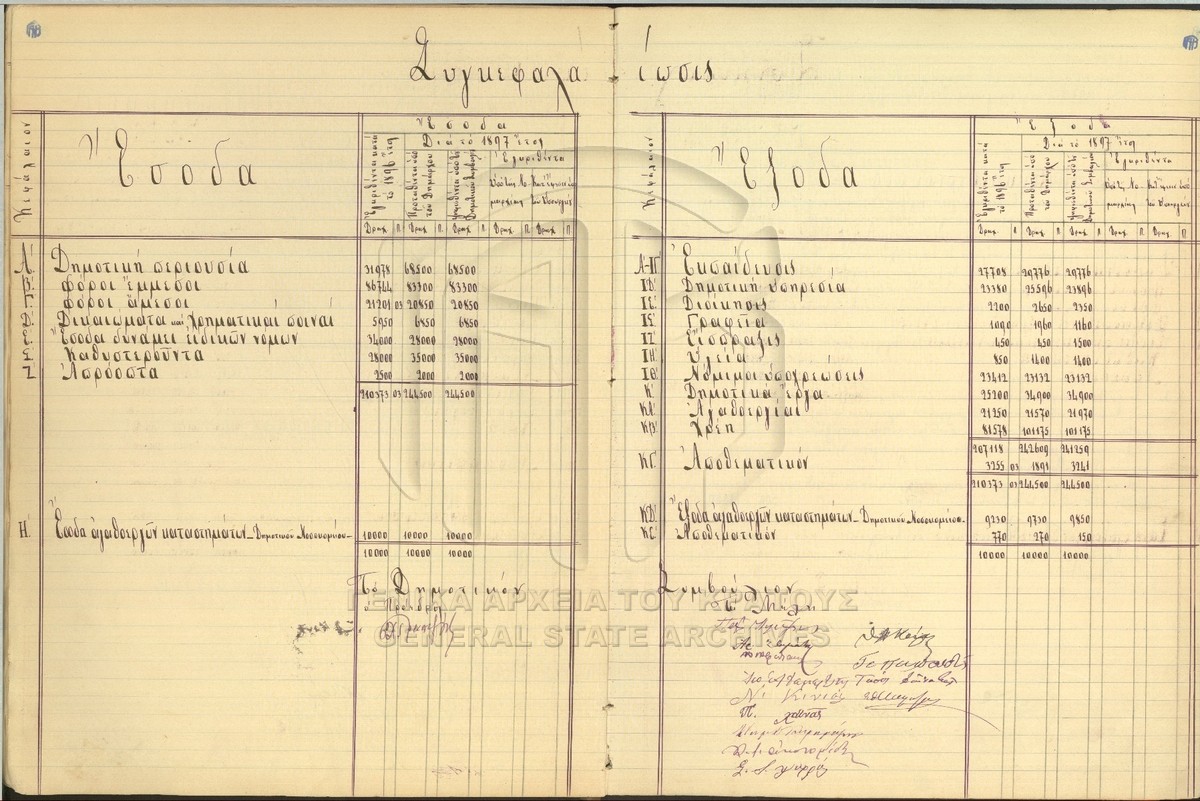 Συγκεφαλαίωσις
Κεφάλαιον
Ἔσοδα
Ἔσοδα
Ἐγκριθέντα κατά τό 1896 ἔτος
Διά τό 1897 ἔτος
Προταθέντα ὑπό τοῦ Δημάρχου
Ψηφισθέντα ὑπό τοῦ Δημοτικοῦ Συμβουλίου
Ἐγκριθέντα
Δραχ. Λ. Δραχ. Λ. Δραχ. Λ. Δραχ. Λ. Δραχ. Λ.
Α΄. Δημοτική περιουσία 31978 68500 68500
Β΄. Φόροι ἔμμεσοι 86744 83300 83300
Γ΄. Φόροι ἄμεσοι 21201 03 20850 20850
Δ΄. Δικαιώματα καί Χρηματικαί ποιναί 5950 6850 6850
Ε΄. Ἔσοδα δυνάμει εἰδικῶν νόμων 34000 28000 28000
ΣΤ΄. Καθυστεροῦντα 28000 35000 35000
Ζ΄. Ἀπρόοπτα 2500 2000 2000
210373 03 244500 244500
Η΄. Ἔσοδα ἀγαθοεργῶν καταστημάτων _ Δημοτικοῦ Νοσοκομείου _ 10000 10000 10000
10000 10000 10000
Τό Δημοτικόν
ὁ Πρόεδρος
Κεφάλαιον
Ἔξοδα
Ἔξοδα
Ἐγκριθέντα κατά τό 1896 ἔτος
Διά τό 1897 ἔτος
Προταθέντα ὑπό τοῦ Δημάρχου
Ψηφισθέντα ὑπό τοῦ Δημοτικοῦ Συμβουλίου
Ἐγκριθέντα
Δραχ. Λ. Δραχ. Λ. Δραχ. Λ. Δραχ. Λ. Δραχ. Λ.
Α΄-ΙΓ΄ Ἐκπαίδευσις 27708 29776 29776
ΙΔ΄ Δημοτική ὑπηρεσία 23380 25596 23896
ΙΕ΄ Διοίκησις 2200 2650 2350
ΙΣΤ΄ Γραφεῖα 1090 1960 1160
ΙΖ΄ Εἴσπραξις 450 450 1500
ΙΗ΄ Ὑγεία 850 1400 1400
ΙΘ΄ Νόμιμοι ὑποχρεώσεις 23412 23132 23132
Κ΄ Δημοτικά ἔργα 25200 34900 34900
ΚΑ΄ Ἀγαθοεργίαι 21250 21570 21970
ΚΒ΄ Χρέη 81578 101175 101175
207118 242609 241259
ΚΓ΄ Ἀποθεματικόν 3255 03 1891 3241
210373 03 244500 244500
ΚΔ΄ Ἔξοδα ἀγαθοεργῶν καταστημάτων _ Δημοτικοῦ Νοσοκομείου _ 9230 9730 9850
ΚΕ΄ Ἀποθεματικόν 770 270 150
10000 10000 10000
Συμβούλιον
Τά Μέλη
ΓΕΝΙΚΑ ΑΡΧΕΙΑ ΤΟΥ ΚΡΑΤΟΥΣ
GENERAL STATE ARCHIVES